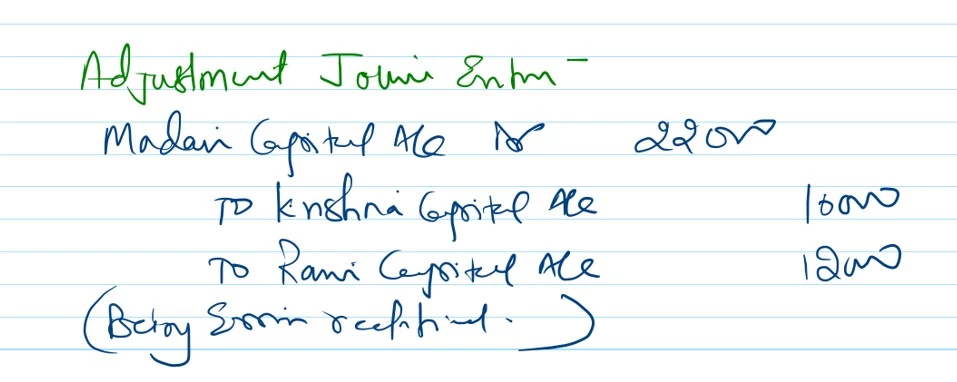 Adjustment Journ Entry -
Madan Capital A/c Dr 22000
To Krishna Capital A/c 10000
To Rami Capital A/c 12000
(Being Error rectified.)